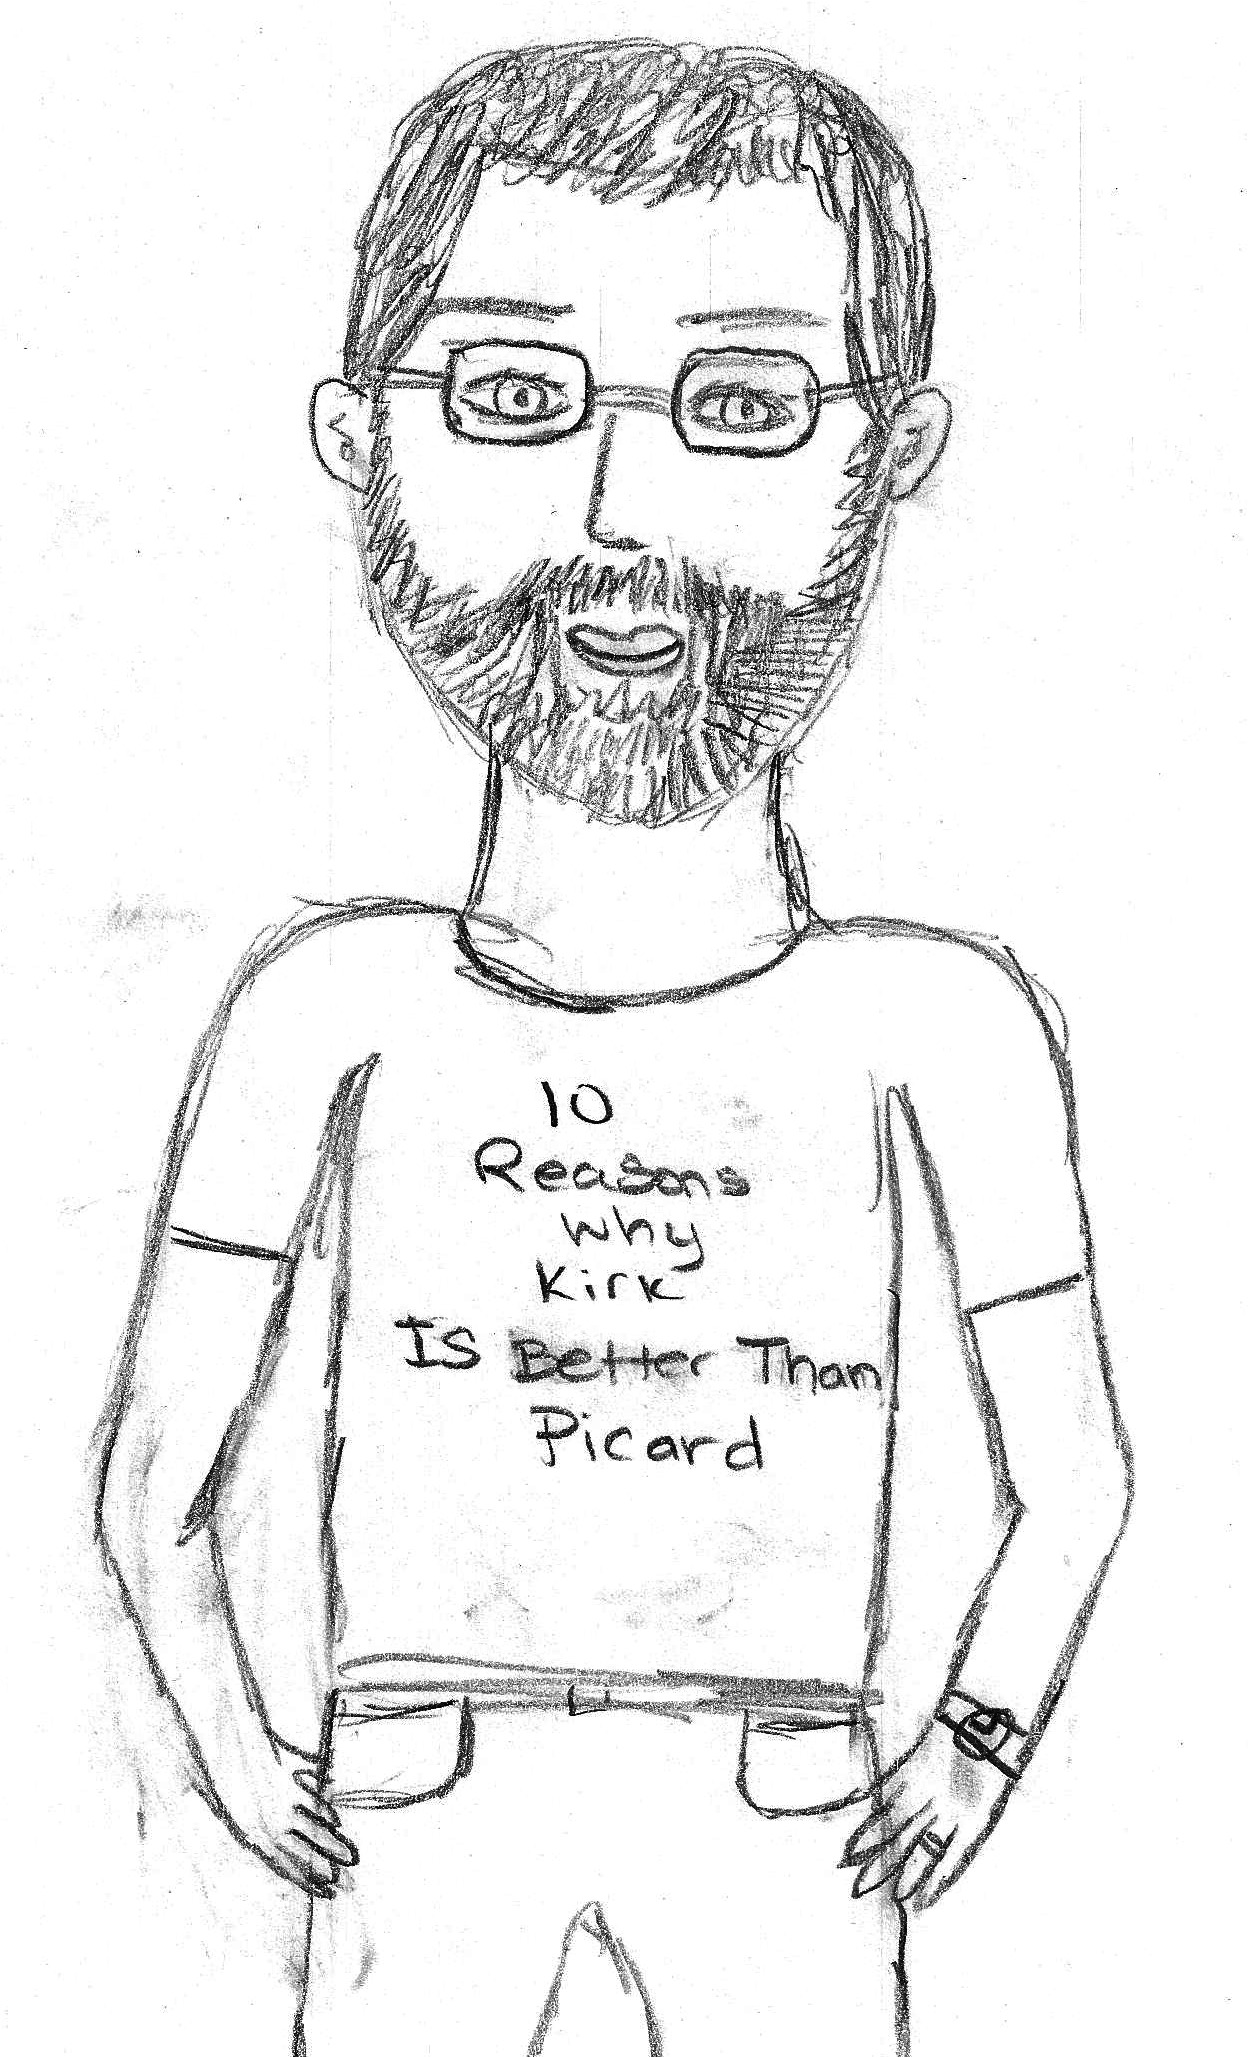 10
Reasons
why
Kirk
IS Better Than
Picard